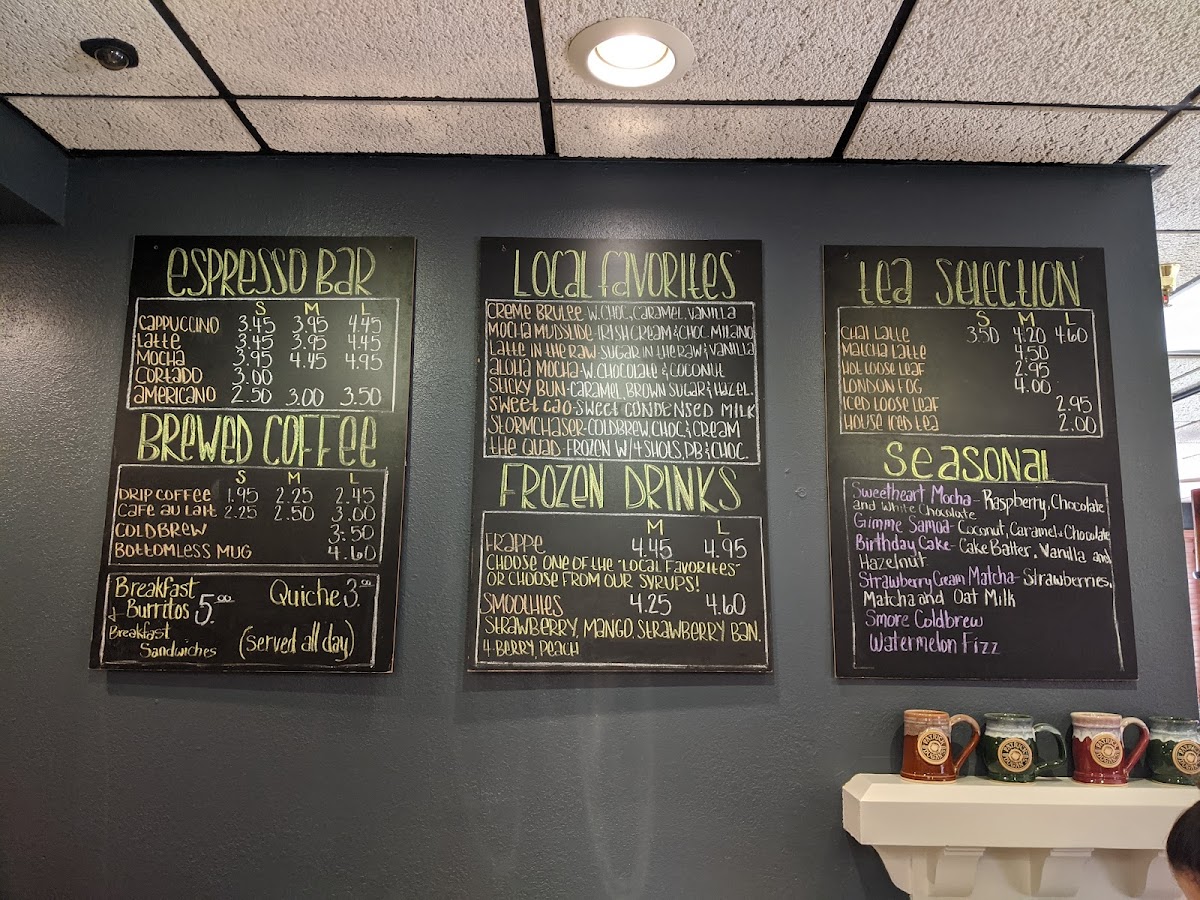 ESPRESSO BAR
S M L
CAPPUCCINO 3.45 3.95 4.45
LATTE 3.45 3.95 4.45
MOCHA 3.95 4.45 4.95
CORTADO 3.00
AMERICANO 2.50 3.00 3.50
BREWED COFFEE
S M L
DRIP COFFEE 1.95 2.25 2.45
CAFE AU LAIT 2.25 2.50 3.00
COLDBREW 3.50
BOTTOMLESS MUG 4.60
Breakfast
Burritos 5.00
+ Breakfast
Sandwiches
Quiche 3.00
(served all day)
LOCAL FAVORITES
CREME BRULEE W. CHOC, CARAMEL, VANILLA
MOCHA MUDSLIDE- IRISH CREAM & CHOC. MILANO
LATTE IN THE RAW- SUGAR IN THE RAW & VANILLA
ALOHA MOCHA- W. CHOCOLATE & COCONUT
STICKY BUN- CARAMEL, BROWN SUGAR & HAZEL.
SWEET CAO- SWEET CONDENSED MILK
STORMCHASER- COLDBREW CHOC & CREAM
THE QUAD- FROZEN W/ 4 SHOTS, PB & CHOC.
FROZEN DRINKS
M L
FRAPPE 4.45 4.95
CHOOSE ONE OF THE "LOCAL FAVORITES"
OR CHOOSE FROM OUR SYRUPS!
SMOOTHIES 4.25 4.60
STRAWBERRY, MANGO, STRAWBERRY BAN.
4-BERRY, PEACH
TEA SELECTION
S M L
CHAI LATTE 3.50 4.20 4.60
MATCHA LATTE 4.50
HOT LOOSE LEAF 2.95
LONDON FOG 4.00
ICED LOOSE LEAF 2.95
HOUSE ICED TEA 2.00
SEASONAL
Sweetheart Mocha- Raspberry, Chocolate
and White Chocolate
Gimme Samoa- Coconut, Caramel + Chocolate
Birthday Cake- Cake Batter, Vanilla and
Hazelnut
Strawberry Cream Matcha- Strawberries,
Matcha and Oat Milk
Smore Coldbrew
Watermelon Fizz